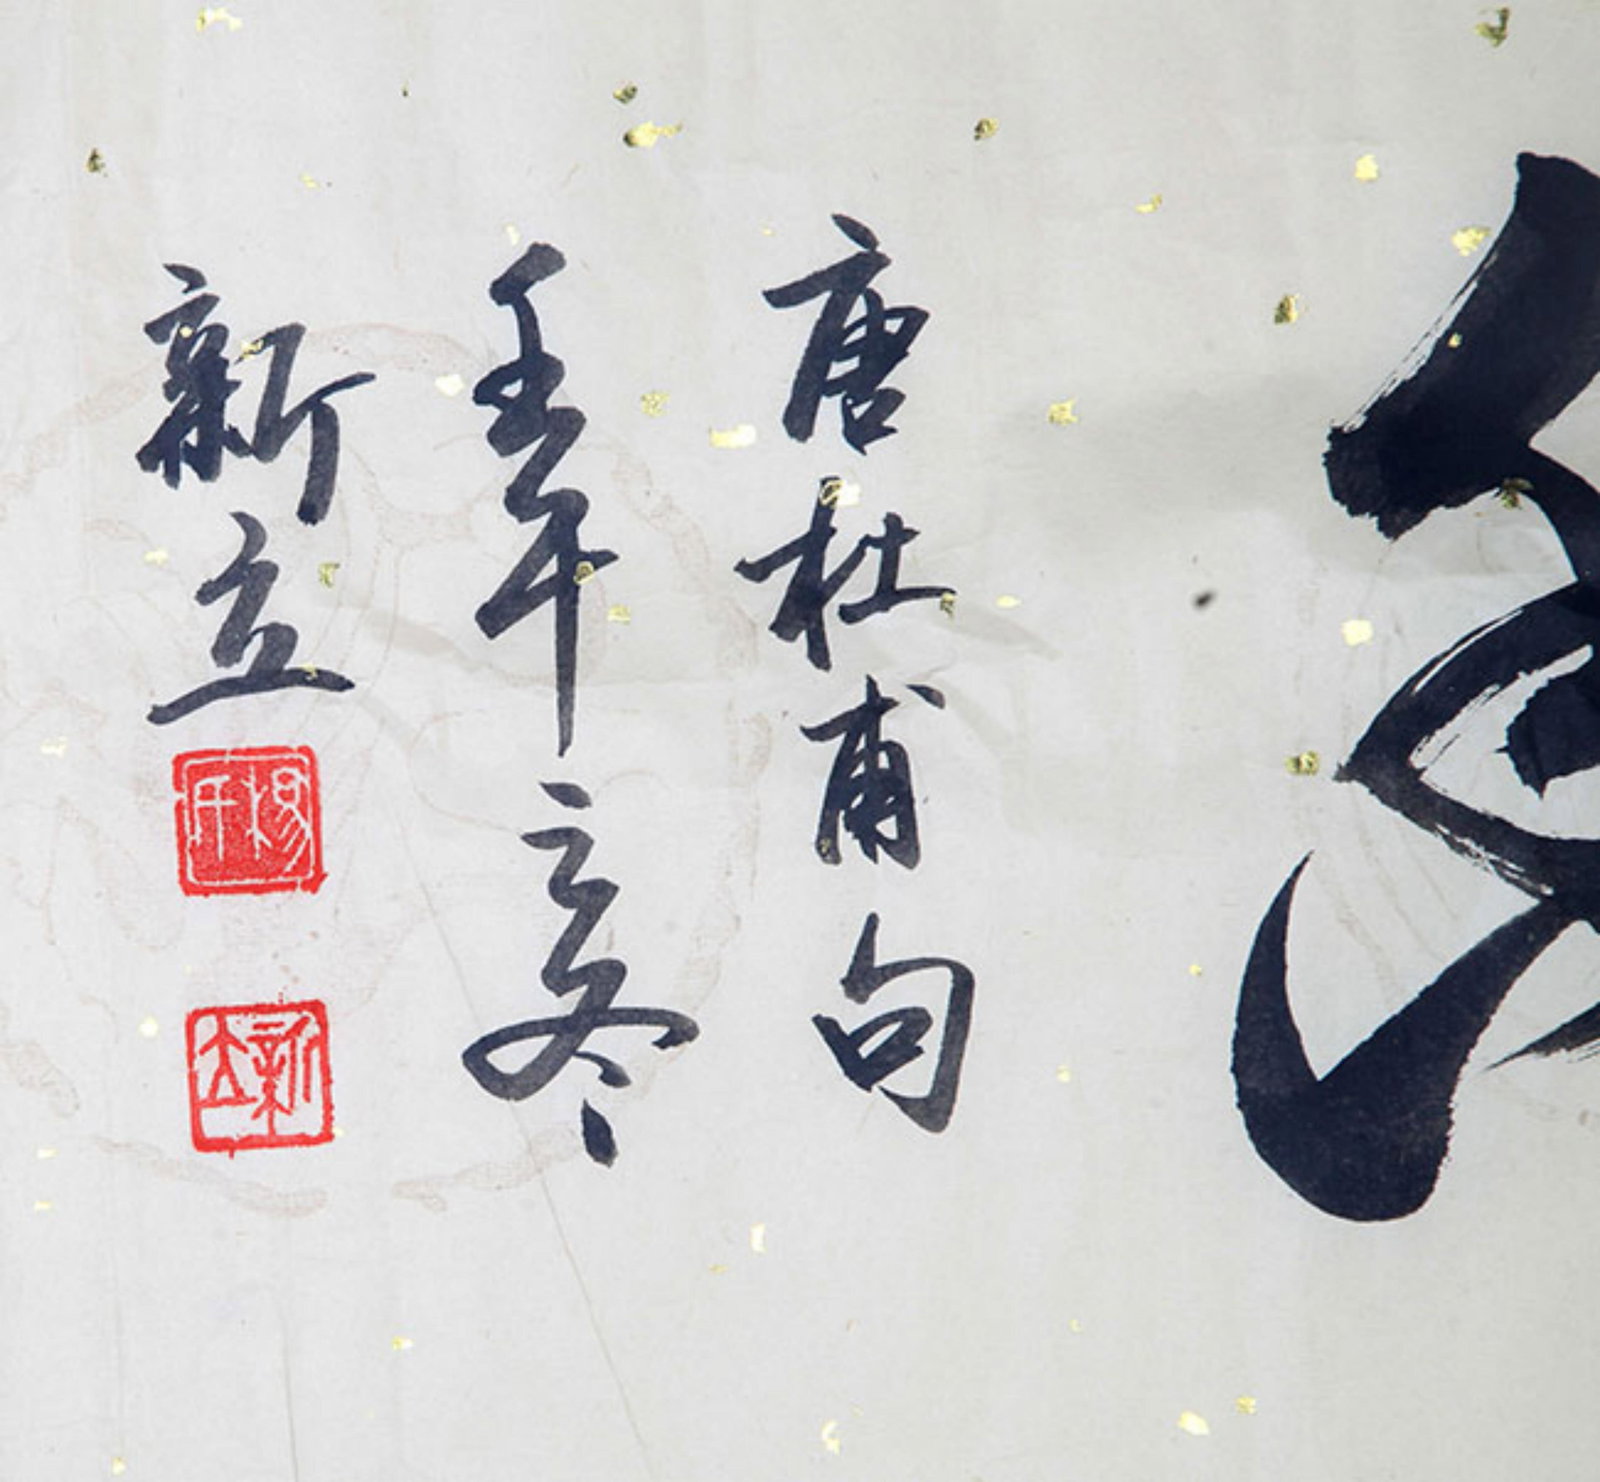 唐杜甫句
壬午之冬
新立
新立